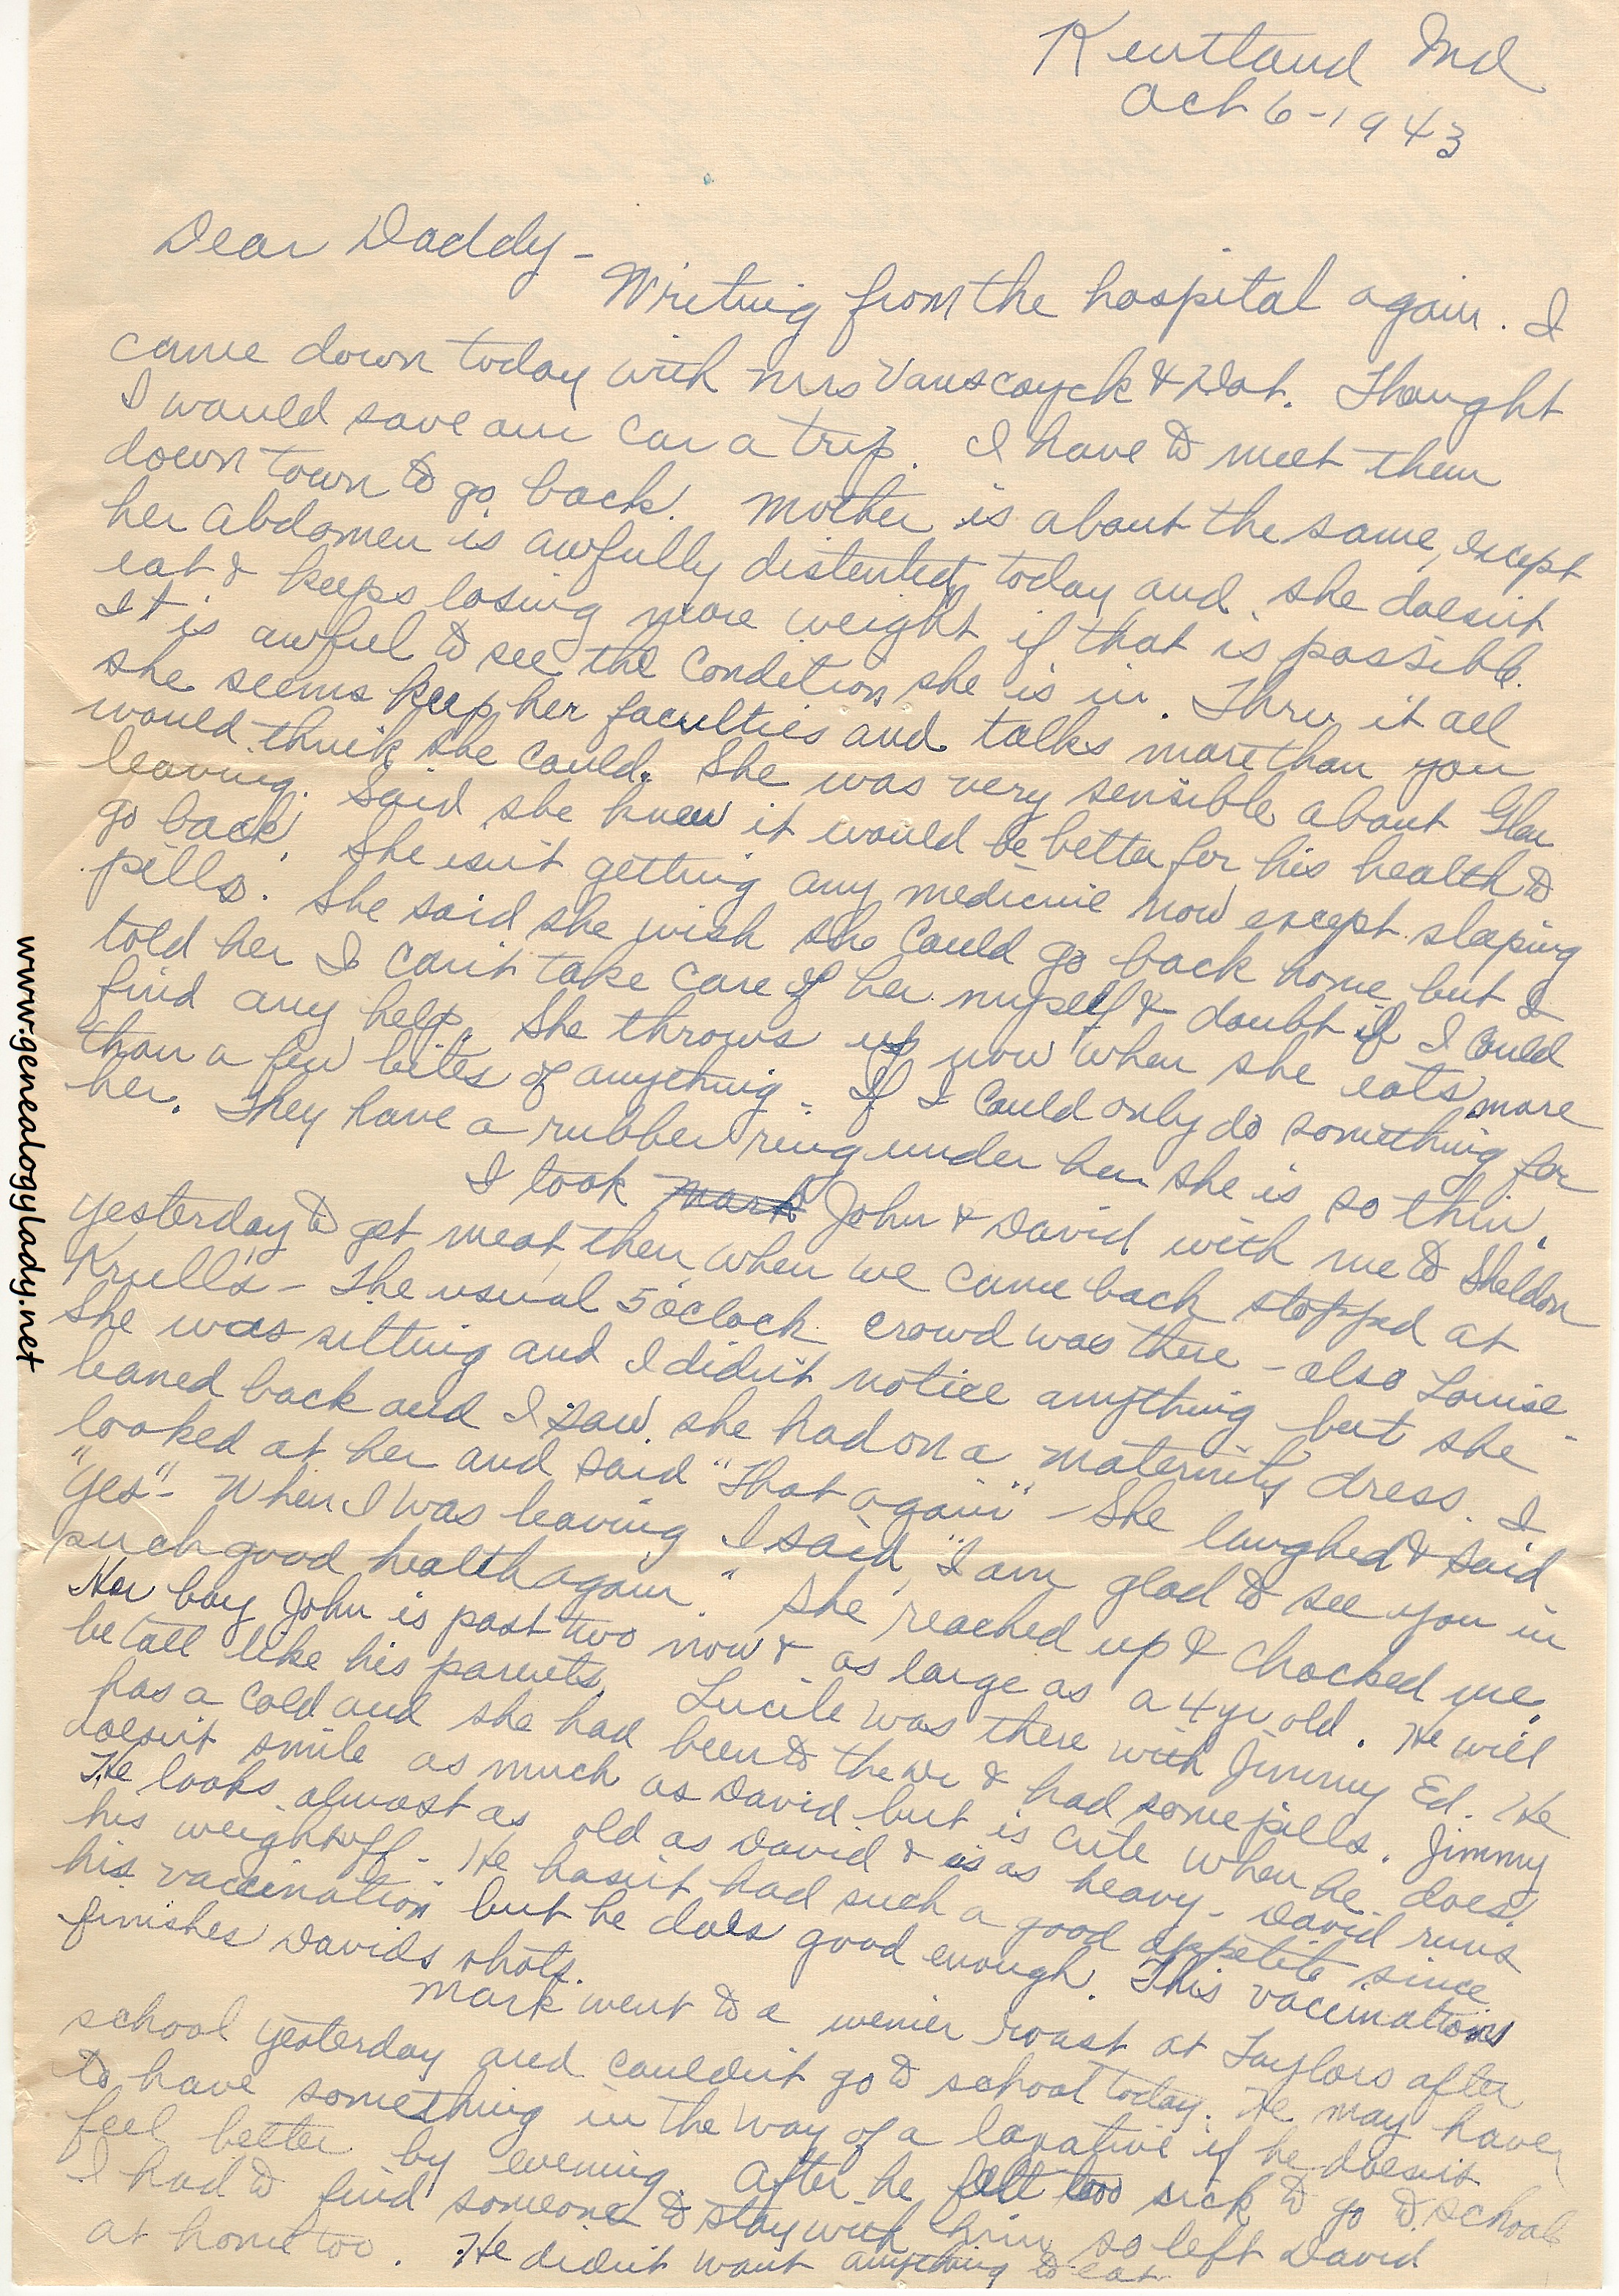 Kentland Ind
Oct 6-1943
Dear Daddy-
Writing from the hospital again. I
came down today with Mrs Vanscoyck & Dot. Thought
I would save our car a trip. I have to meet them
down town to go back. Mother is about the same, except
her abdomen is awfully distented today and she doesn't
eat & keeps losing more weight if that is possible.
It is awful to see the condition she is in. Thru it all
she seems keep her faculties and talks more than you
would think she could. She was very sensible about Glen
leaving. Said she knew it would be better for his health to
go back. She isn't getting any medicine now except sleeping
pills. She said she wish she could go back home but I
told her I can't take care of her myself & doubt if I could
find any help. She throws up now when she eats more
than a few bites of anything. If I could only do something for
her. They have a rubber ring under her she is so thin.
I took Mark John & David with me to Sheldon
yesterday to get meat, then when we came back stopped at
Krull's - The usual 5 o'clock crowd was there - also Louise -
She was sitting and I didn't notice anything but she
leaned back and I saw she had on a maternity dress. I
looked at her and said "That again" - She laughed & said
"Yes" - When I was leaving I said, "I am glad to see you in
such good health again." She reached up & chocked me.
Her boy John is past two now & as large as a 4 yr old. He will
be tall like his parents. Lucile was there with Jimmy Ed. He
has a cold and she had been to the Dr & had some pills. Jimmy
doesn't smile as much as David but is cute when he does.
He looks almost as old as David & is as heavy - David runs
his weight off - He hasn't had such a good appetite since
his vaccination but he does good enough. This vaccinations
finishes Davids shots.
Mark went to a weiner roast at Taylors after
school yesterday and couldn't go to school today. He may have
to have something in the way of a laxative if he doesn't
feel better by evening. After he felt too sick to go to school
I had to find someone to stay with him so left David
at home too. He didn't want anything to eat
www.genealogylady.net